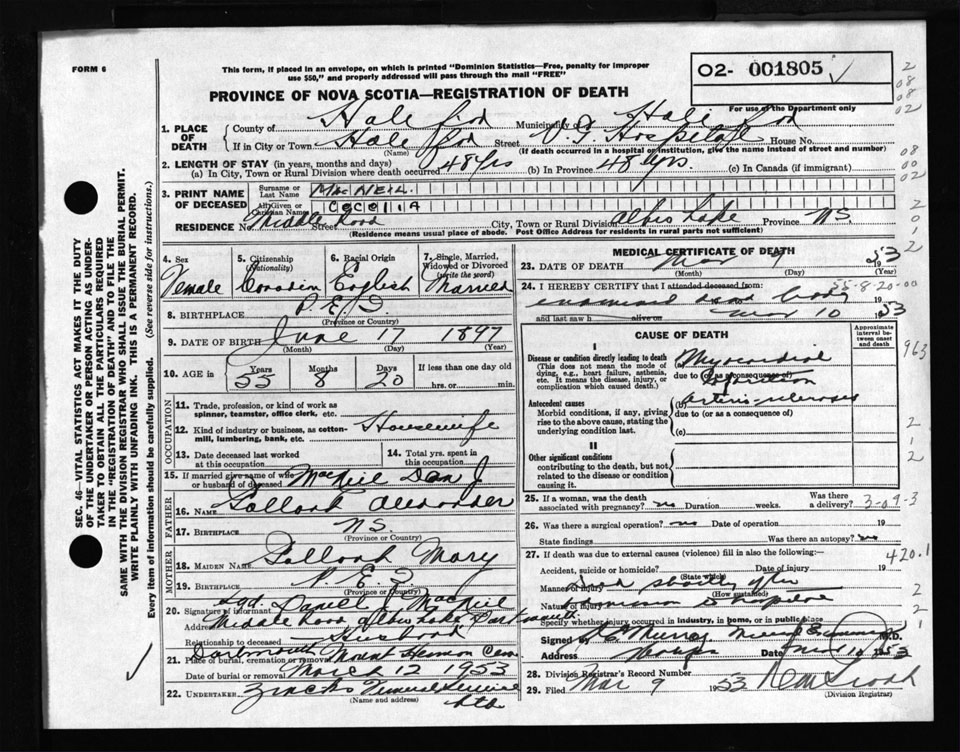 FORM 6
This form, if placed in an envelope, on which is printed "Dominion Statistics—Free, penalty for improper
use $50," and properly addressed will pass through the mail "FREE"
02- 001805
PROVINCE OF NOVA SCOTIA—REGISTRATION OF DEATH
For use of the Department only
1. PLACE OF DEATH
County of Halifax Municipality Halifax
If in City or Town Halifax Street V.G. Hospital House No.
(Name) (If death occurred in a hospital or institution, give the name instead of street and number)
2. LENGTH OF STAY (in years, months and days)
(a) In City, Town or Rural Division where death occurred 48 yrs (b) In Province 48 yrs. (c) In Canada (if immigrant)
3. PRINT NAME OF DECEASED
Surname or Last Name MacNeil
All Given or Christian Names Cecelia
RESIDENCE No. Middle Road Street City, Town or Rural Division Albro Lake Province N.S.
(Residence means usual place of abode. Post Office Address for residents in rural parts not sufficient)
4. Sex Female
5. Citizenship (Nationality) Canadian
6. Racial Origin English
7. Single, Married, Widowed or Divorced (write the word) Married
8. BIRTHPLACE P.E.I.
(Province or Country)
9. DATE OF BIRTH June 17 1897
(Month) (Day) (Year)
10. AGE in Years 55 Months 8 Days 20 If less than one day old hrs. or min.
OCCUPATION
11. Trade, profession, or kind of work as
spinner, teamster, office clerk, etc.
12. Kind of industry or business, as cotton-
mill, lumbering, bank, etc. Housewife
13. Date deceased last worked
at this occupation
14. Total yrs. spent in
this occupation
15. If married give name of wife
or husband of deceased MacNeil Dan J
FATHER
16. NAME Alexander
17. BIRTHPLACE N.S.
(Province or Country)
MOTHER
18. MAIDEN NAME Mary
19. BIRTHPLACE P.E.I.
(Province or Country)
20. Signature of informant Sgd. Daniel J MacNeil
Address Middle Road Albro Lake Dartmouth
Relationship to deceased Husband
21. Place of burial, cremation or removal Dartmouth Mount Hermon Cem.
Date of burial or removal March 12 1953
22. UNDERTAKER Zincks Funeral Service Ltd.
(Name and address)
MEDICAL CERTIFICATE OF DEATH
23. DATE OF DEATH Mar 9 1953
(Month) (Day) (Year)
24. I HEREBY CERTIFY that I attended deceased from:
55-8-20-00
examined dead body 19
and last saw h alive on Mar 10 1953
CAUSE OF DEATH
Approximate interval between onset and death
I
Disease or condition directly leading to death
(This does not mean the mode of
dying, e.g., heart failure, asthenia,
etc. It means the disease, injury, or
complication which caused death.)
(a) Myocardial
due to (or as a consequence of)
Infarction
Antecedent causes
Morbid conditions, if any, giving
rise to the above cause, stating the
underlying condition last.
(b) Arterio-sclerosis
due to (or as a consequence of)
(c)
II
Other significant conditions
contributing to the death, but not
related to the disease or condition
causing it.
25. If a woman, was the death
associated with pregnancy? no Duration weeks. Was there a delivery? 3-09-3
26. Was there a surgical operation? no Date of operation 19
State findings Was there an autopsy? no
27. If death was due to external causes (violence) fill in also the following:
420.1
Accident, suicide or homicide? Date of injury 19
(State which)
Manner of injury died shortly after
(How sustained)
Nature of injury admission to hospital
Specify whether injury occurred in industry, in home, or in public place
Signed by Murray Medical Examiner M.D.
Address Halifax Date Mar 10 1953
28. Division Registrar's Record Number
29. Filed Mar 9 1953
(Division Registrar)
SEC. 46—VITAL STATISTICS ACT MAKES IT THE DUTY
OF THE UNDERTAKER OR PERSON ACTING AS UNDER-
TAKER TO OBTAIN ALL THE PARTICULARS REQUIRED
IN THE "REGISTRATION OF DEATH" AND TO FILE THE
SAME WITH THE DIVISION REGISTRAR WHO SHALL ISSUE THE BURIAL PERMIT.
WRITE PLAINLY WITH UNFADING INK. THIS IS A PERMANENT RECORD.
Every item of information should be carefully supplied. (See reverse side for instructions.)
963